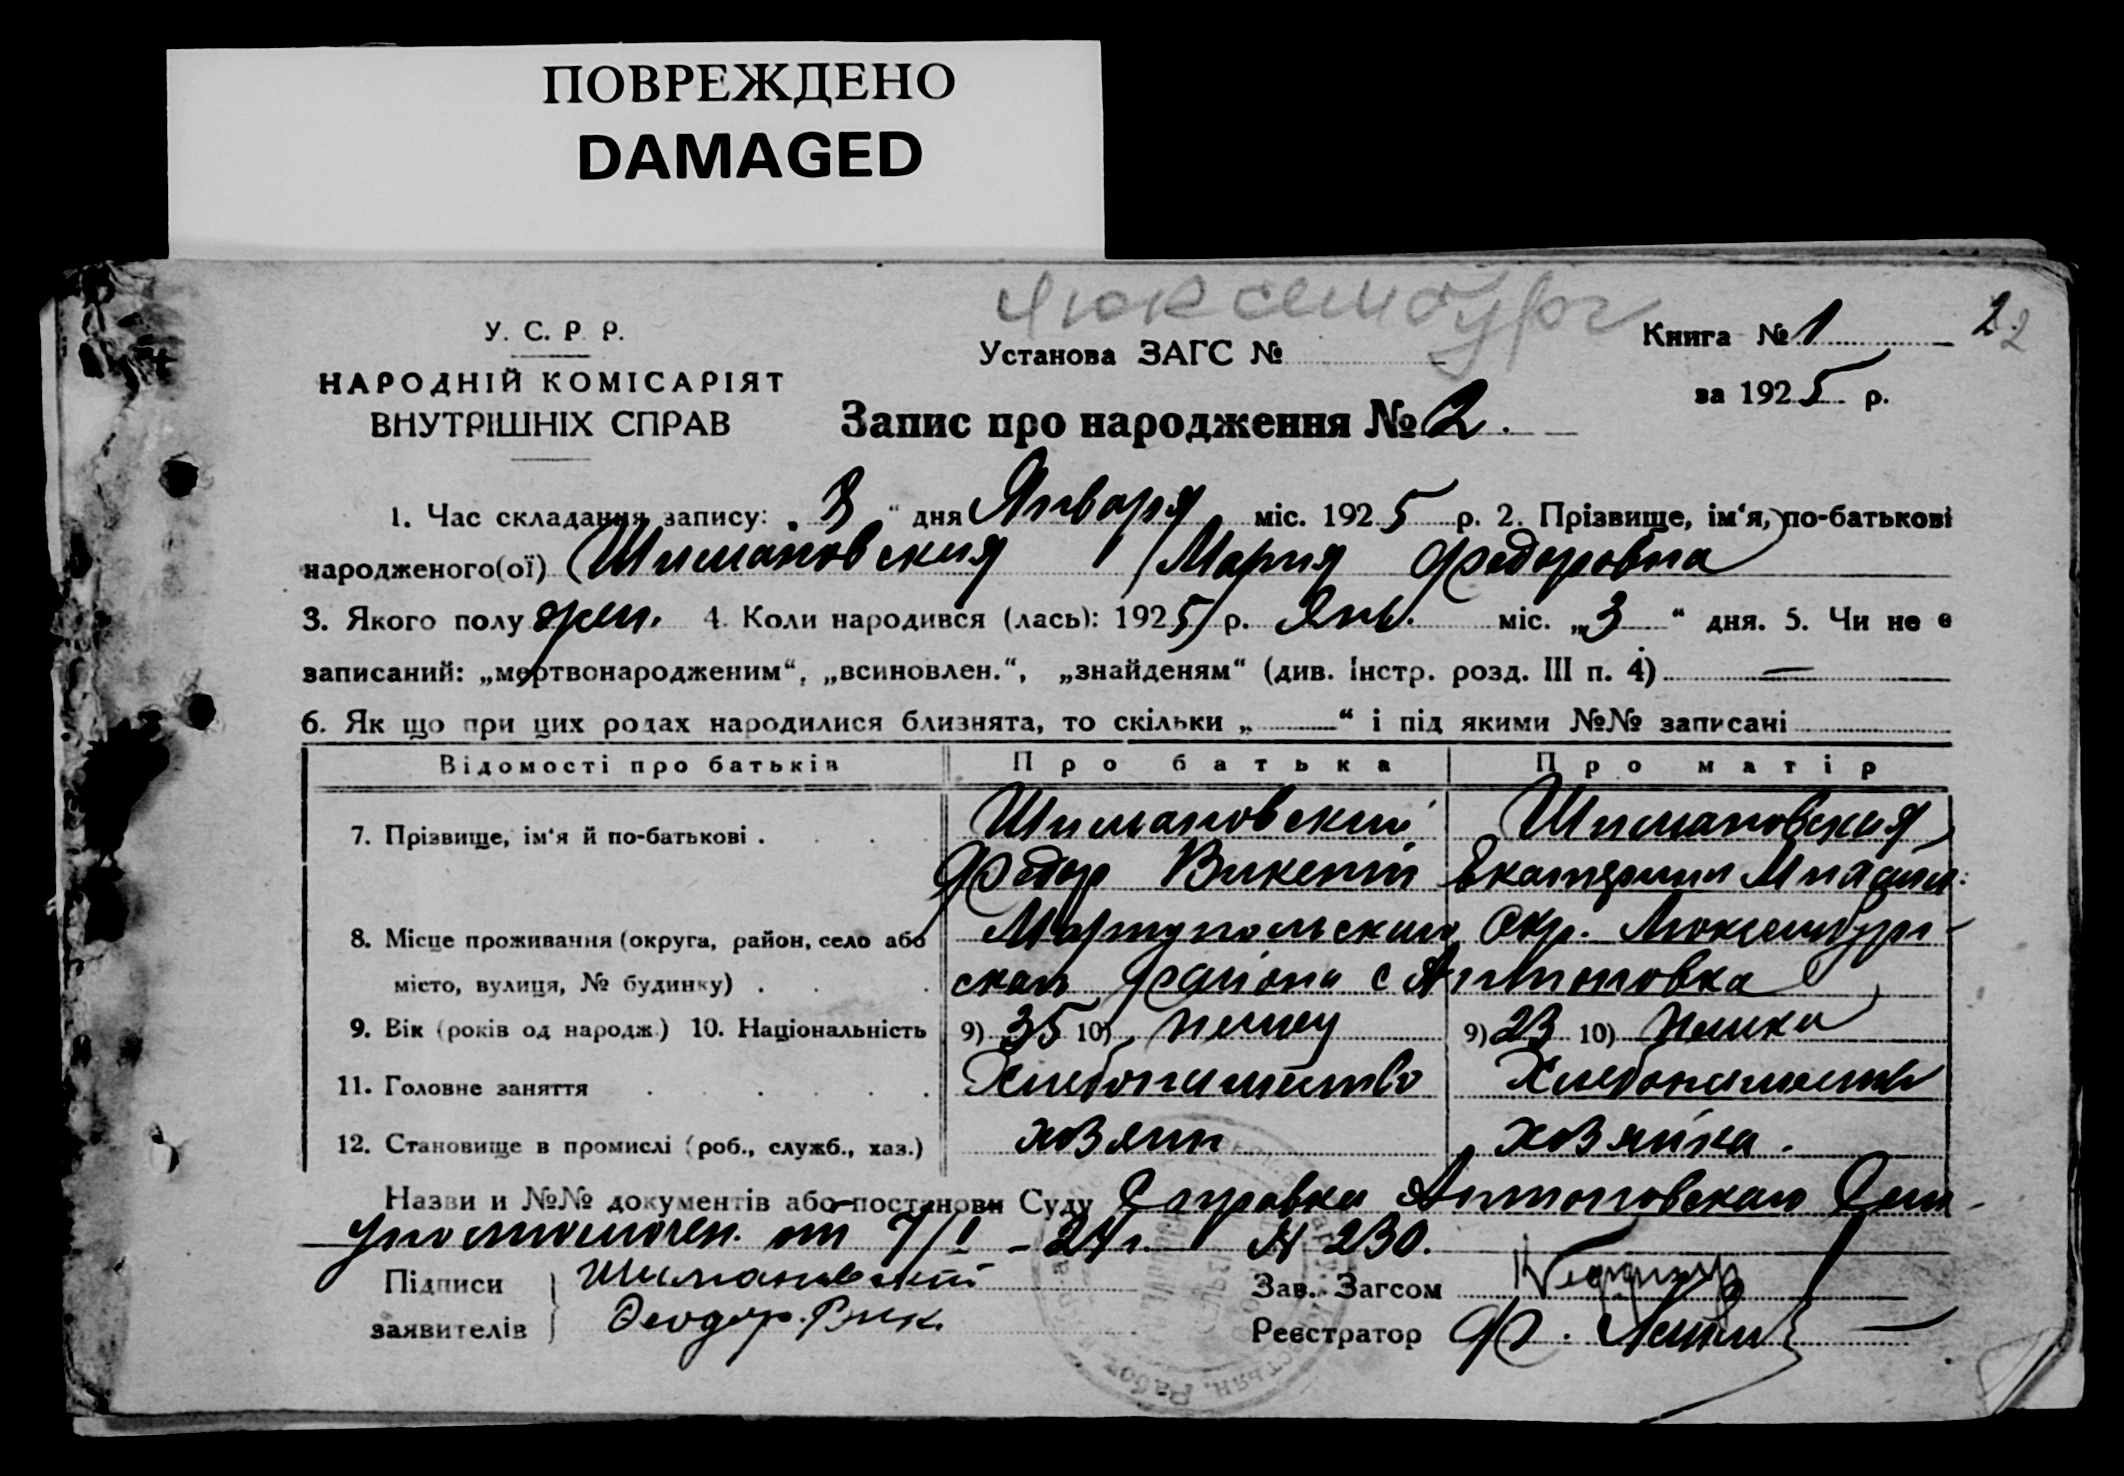 ПОВРЕЖДЕНО
DAMAGED
Люксембург
У. С. Р. Р.
НАРОДНІЙ КОМІСАРІЯТ
ВНУТРІШНІХ СПРАВ
Установа ЗАГС №
Книга № 1
2
2
за 1925 р.
Запис про народження № 2.
1. Час складання запису: „3“ дня Января міс. 1925 р. 2. Прізвище, ім‘я, по-батькові
народженого(ої) (Шимановская Мария Федоровна)
3. Якого полу жен. 4. Коли народився (лась): 1925 р. Янв. міс. „3“ дня. 5. Чи не є
записаний: „мертвонародженим“, „всиновлен.“, „знайденям“ (див. Інстр. розд. III п. 4) —
6. Як що при цих родах народилися близнята, то скільки „ “ і під якими №№ записані
Відомості про батьків Про батька Про матір
7. Прізвище, ім‘я й по-батькові . Шимановский Шимановская
Федор Викент Екатерина
8. Місце проживання (округа, район, село або Мариупольская Окр. Люксембург-
місто, вулиця, № будинку) . скаго района с Антоновка
9. Вік (років од народж.) 10. Національність 9) 35 10) немец 9) 23 10) немка
11. Головне заняття Хлебопашество Хлебопашество
12. Становище в промислі (роб., служб., хаз.) хозяин хозяйка.
Назви и №№ документів або постанови Суду Справка Антоновскаго Сель-
уполномочен. от 7/I - 24 г. № 230.
Підписи Шимановский
заявителів Феодор. Вик.
Зав. Загсом
Реєстратор Ф.